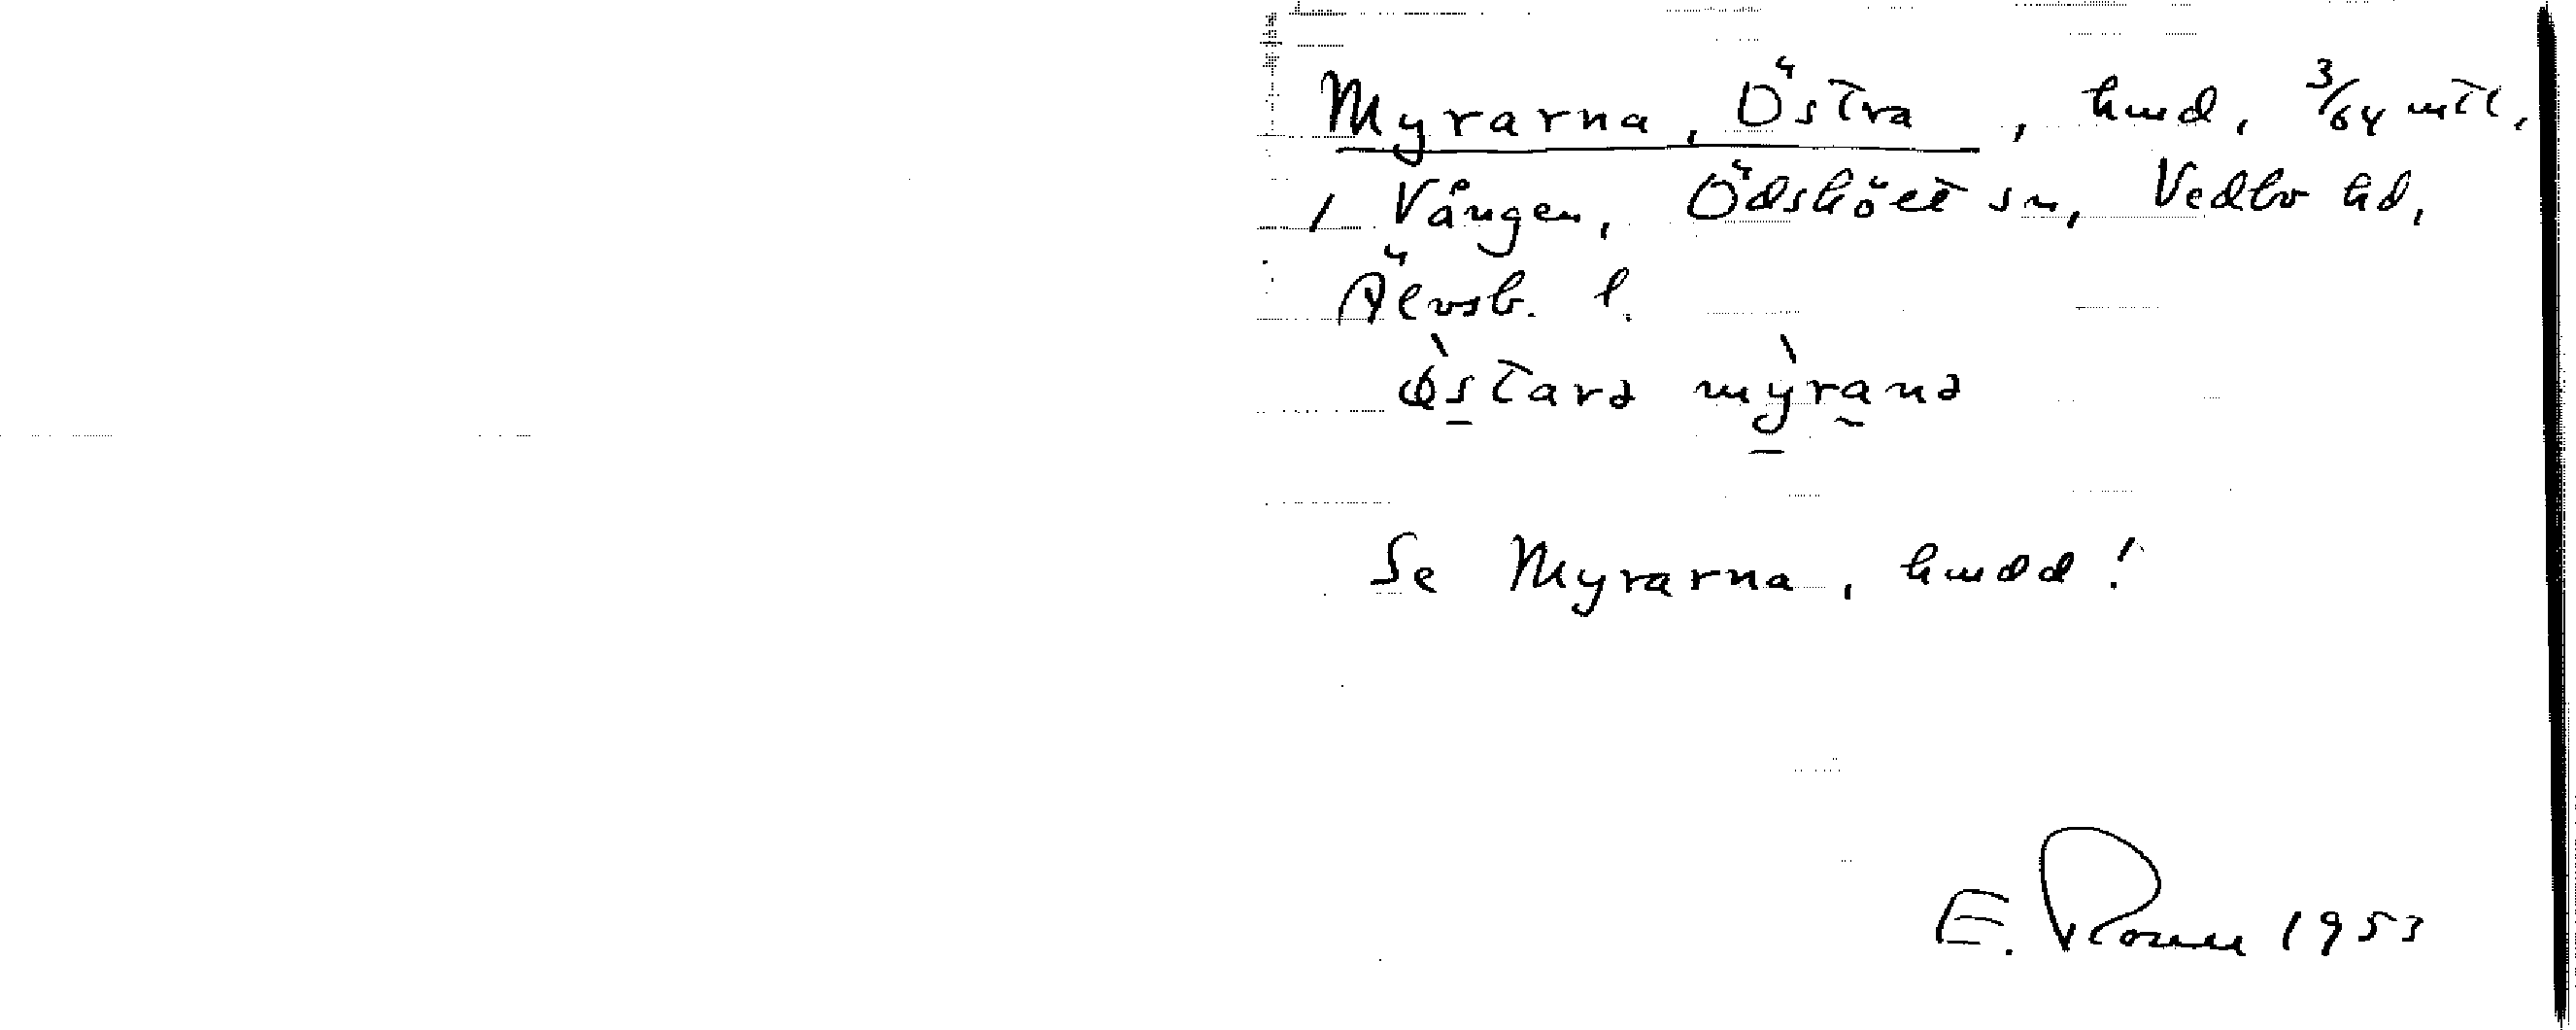 Myrarna, Östra, hmd, 3/64 mtl,
1 Vången, Ödskölt sn, Vedbo hd,
Älvsb. l.
ø̀starə mỳranə
Se Myrarna, hmdd!
E. 1953